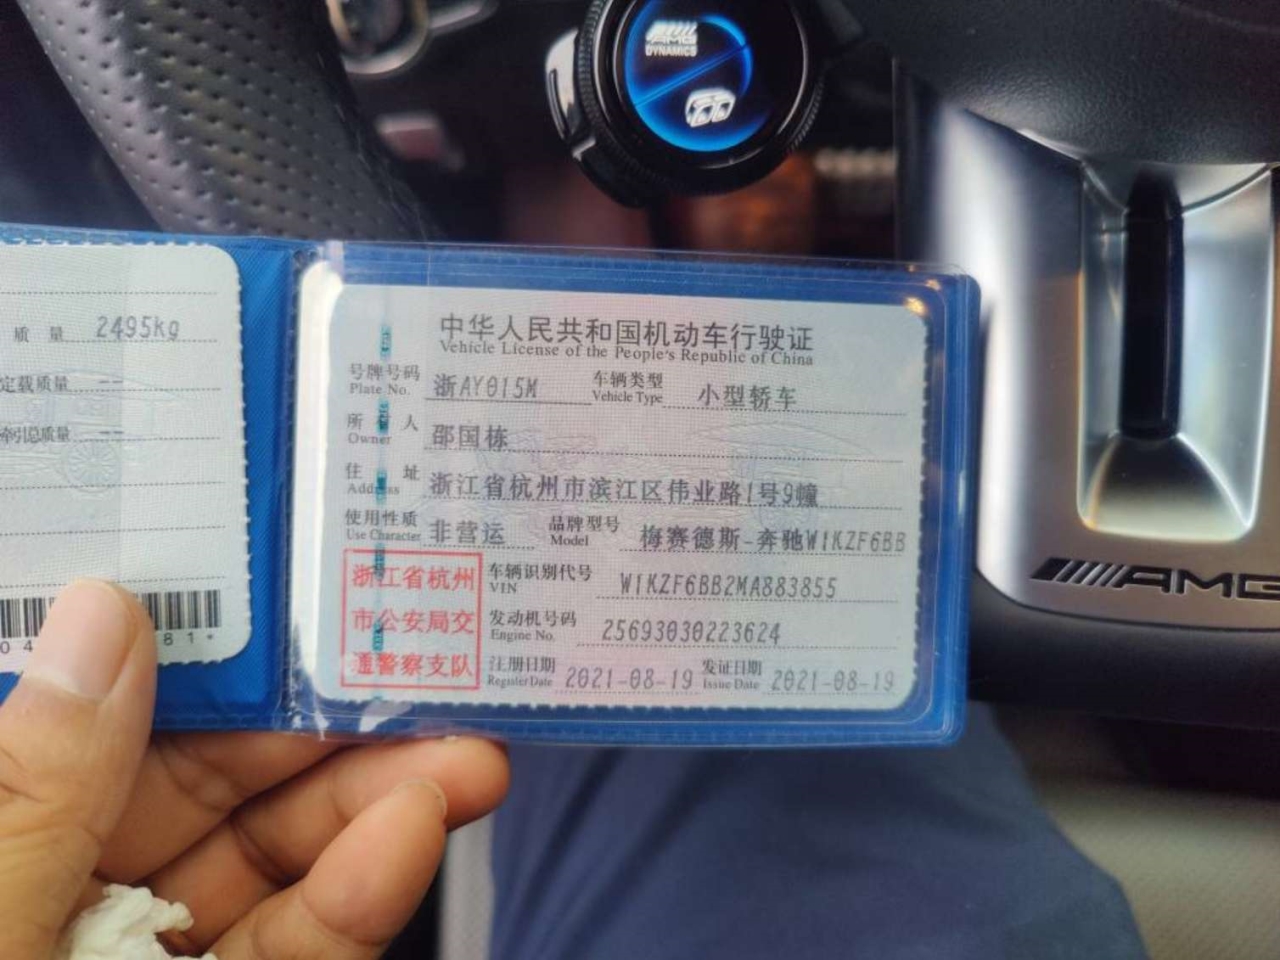 AMG
DYNAMICS
质量 2495kg
定载质量 --
牵引总质量 --
中华人民共和国机动车行驶证
Vehicle License of the People's Republic of China
号牌号码 浙AY015M 车辆类型 小型轿车
Plate No. Vehicle Type
所有人 邵国栋
Owner
住址 浙江省杭州市滨江区伟业路1号9幢
Address
使用性质 非营运 品牌型号 梅赛德斯-奔驰W1KZF6BB
Use Character Model
浙江省杭州
市公安局交
通警察支队
车辆识别代号 W1KZF6BB2MA883855
VIN
发动机号码 25693030223624
Engine No.
注册日期 2021-08-19 发证日期 2021-08-19
Register Date Issue Date
AMG